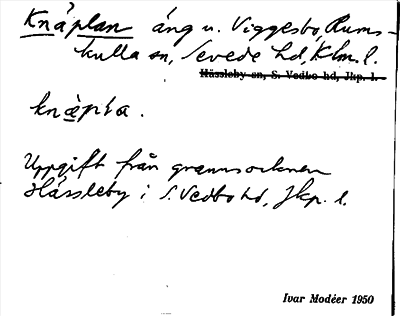 Knäplan äng u. Viggesbo, Rums-
kulla sn, Sevede hd, Klm. l.
Hässleby sn, S. Vedbo hd, Jkp. l.
knæpla.
Uppgift från grannsocknen
Hässleby i S. Vedbo hd, Jkp. l.
Ivar Modéer 1950